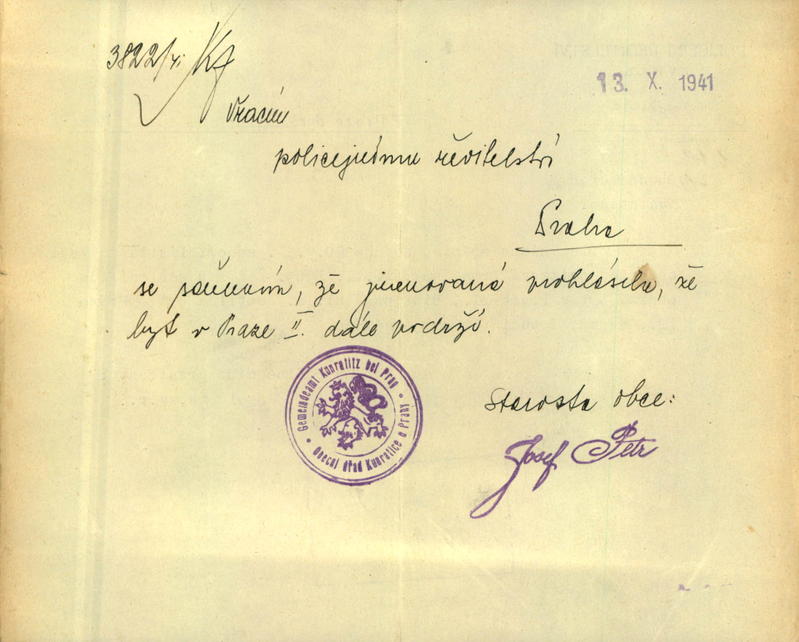 3822/41 Kř
13. X. 1941
Vracím
policejnímu ředitelství
Praha
se sdělením, že jmenovaná prohlásila, že
byt v Praze II. dále podrží.
Gemeindeamt Kunratitz bei Prag
Obecní úřad Kunratice u Prahy
Starosta obce:
Josef Petr